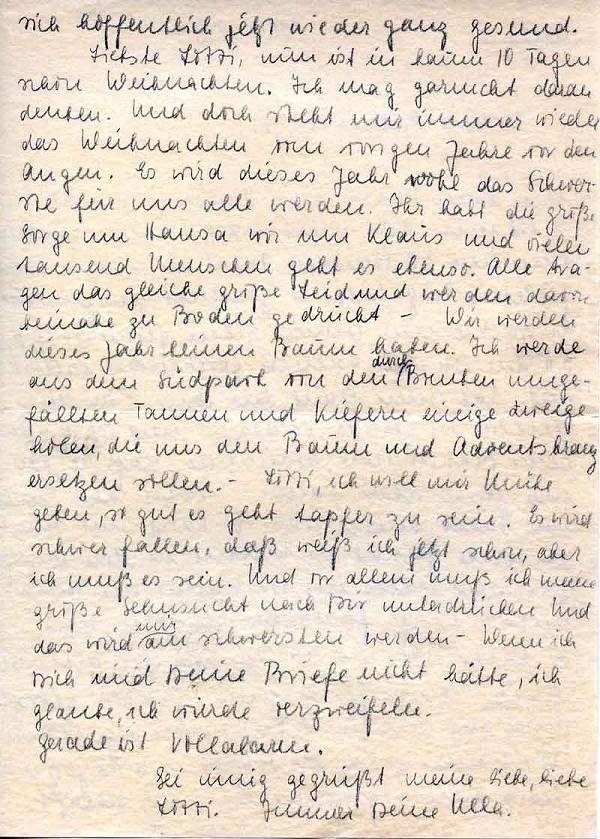 sich hoffentlich jetzt wieder ganz gesund.
Liebste Lotti, nun ist in kaum 10 Tagen
schon Weihnachten. Ich mag garnicht daran
denken. Und doch steht mir immer wieder
das Weihnachten vom vorigen Jahre vor den
Augen. Es wird dieses Jahr wohl das Schwer-
ste für uns alle werden. Ihr habt die große
Sorge um Hansa wir um Klaus und vielen
tausend Menschen geht es ebenso. Alle tra-
gen das gleiche große Leid und werden davon
beinahe zu Boden gedrückt - Wir werden
dieses Jahr keinen Baum haben. Ich werde
aus dem Südpark von den durch Bomben umge-
fällten Tannen und Kiefern einige Zweige
holen, die uns den Baum und Adventskranz
ersetzen sollen. - Lotti, ich will mir Mühe
geben, so gut es geht tapfer zu sein. Es wird
schwer fallen, daß weiß ich jetzt schon, aber
ich muß es sein. Und vor allem muß ich meine
große Sehnsucht nach Dir unterdrücken und
das wird mir am schwersten werden - Wenn ich
Dich und Deine Briefe nicht hätte, ich
glaube, ich würde verzweifeln.
Gerade ist Vollalarm.
Sei innig gegrüßt meine liebe, liebe
Lotti. Immer Deine Ulla.